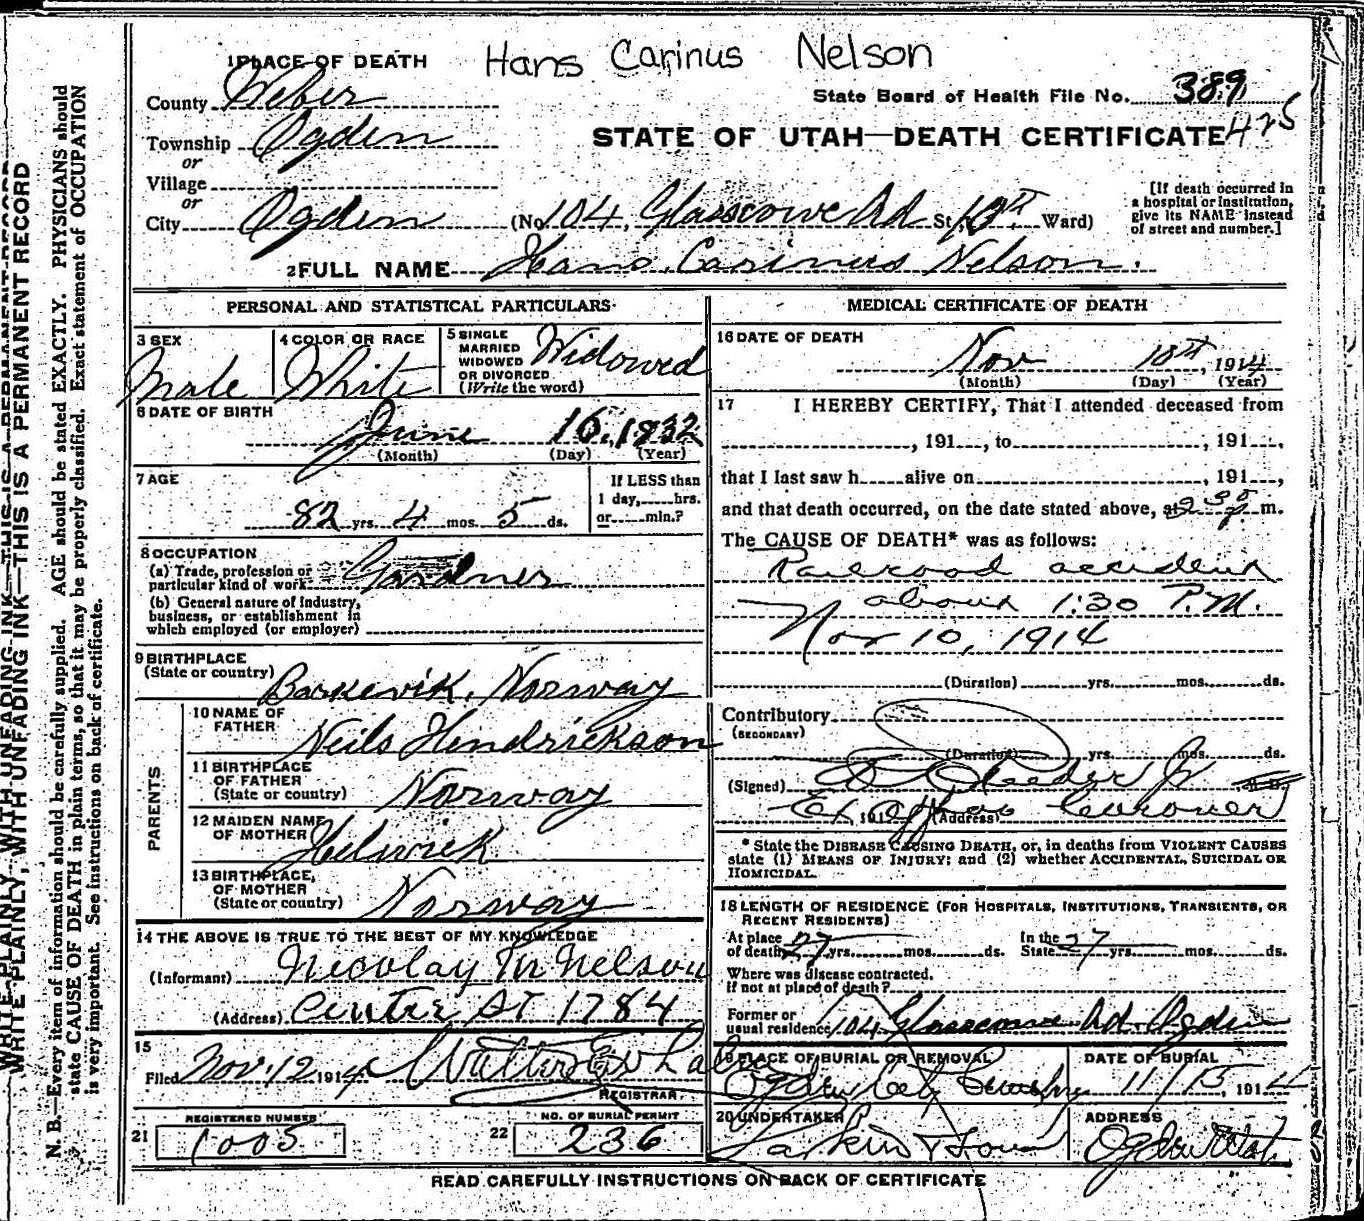 Hans Carinus Nelson
1 PLACE OF DEATH
County Weber
State Board of Health File No. 389
Township Ogden
STATE OF UTAH—DEATH CERTIFICATE 425
or
Village
or
City Ogden (No. 104, Glasscowe Ad St., 13th Ward)
[If death occurred in
a hospital or institution,
give its NAME instead
of street and number.]
2 FULL NAME Hans Carinus Nelson.
PERSONAL AND STATISTICAL PARTICULARS
3 SEX
Male
4 COLOR OR RACE
White
5 SINGLE
MARRIED
WIDOWED
OR DIVORCED
(Write the word)
Widowed
6 DATE OF BIRTH
June 16, 1832
(Month) (Day) (Year)
7 AGE
82 yrs. 4 mos. 5 ds.
If LESS than
1 day, hrs.
or min.?
8 OCCUPATION
(a) Trade, profession or
particular kind of work Gardner
(b) General nature of industry,
business, or establishment in
which employed (or employer)
9 BIRTHPLACE
(State or country)
Barkevik, Norway
PARENTS
10 NAME OF
FATHER
Neils Hendrickson
11 BIRTHPLACE
OF FATHER
(State or country) Norway
12 MAIDEN NAME
OF MOTHER
Helwick
13 BIRTHPLACE,
OF MOTHER
(State or country) Norway
14 THE ABOVE IS TRUE TO THE BEST OF MY KNOWLEDGE
(Informant) Nicolay M Nelson
(Address) Center St 1784
15
Filed Nov. 12 1914
REGISTRAR
REGISTERED NUMBER
21 1005
NO. OF BURIAL PERMIT
22 236
MEDICAL CERTIFICATE OF DEATH
16 DATE OF DEATH
Nov 10th, 1914
(Month) (Day) (Year)
17 I HEREBY CERTIFY, That I attended deceased from
, 191 , to , 191 ,
that I last saw h alive on , 191 ,
and that death occurred, on the date stated above, at 2 30 P. m.
The CAUSE OF DEATH* was as follows:
Railroad accident
about 1:30 P.M.
Nov 10, 1914
(Duration) yrs. mos. ds.
Contributory
(SECONDARY)
(Duration) yrs. mos. ds.
(Signed)
191 (Address)
* State the DISEASE CAUSING DEATH, or, in deaths from VIOLENT CAUSES
state (1) MEANS OF INJURY; and (2) whether ACCIDENTAL, SUICIDAL OR
HOMICIDAL.
18 LENGTH OF RESIDENCE (FOR HOSPITALS, INSTITUTIONS, TRANSIENTS, OR
RECENT RESIDENTS)
At place
of death 27 yrs. mos. ds. In the
State 27 yrs. mos. ds.
Where was disease contracted,
if not at place of death?
Former or
usual residence 104 Glasscowe Ad. Ogden
19 PLACE OF BURIAL OR REMOVAL
Ogden City Cemetery
DATE OF BURIAL
11/15, 1914
20 UNDERTAKER
Larkin & Sons
ADDRESS
Ogden Utah
READ CAREFULLY INSTRUCTIONS ON BACK OF CERTIFICATE
WRITE PLAINLY, WITH UNFADING INK—THIS IS A PERMANENT RECORD
N. B.—Every item of information should be carefully supplied. AGE should be stated EXACTLY. PHYSICIANS should
state CAUSE OF DEATH in plain terms, so that it may be properly classified. Exact statement of OCCUPATION
is very important. See instructions on back of certificate.